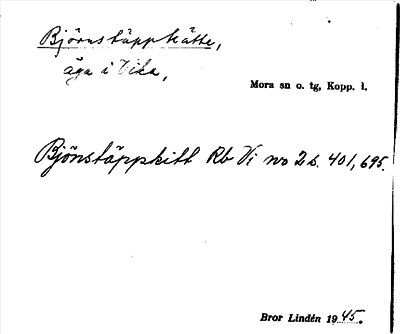 Björnstäppkätte,
äga i Vika,
Mora sn o. tg, Kopp. l.
Bjönstäppkitt Rb Vi no 2 s. 401, 695.
Bror Lindén 1945.